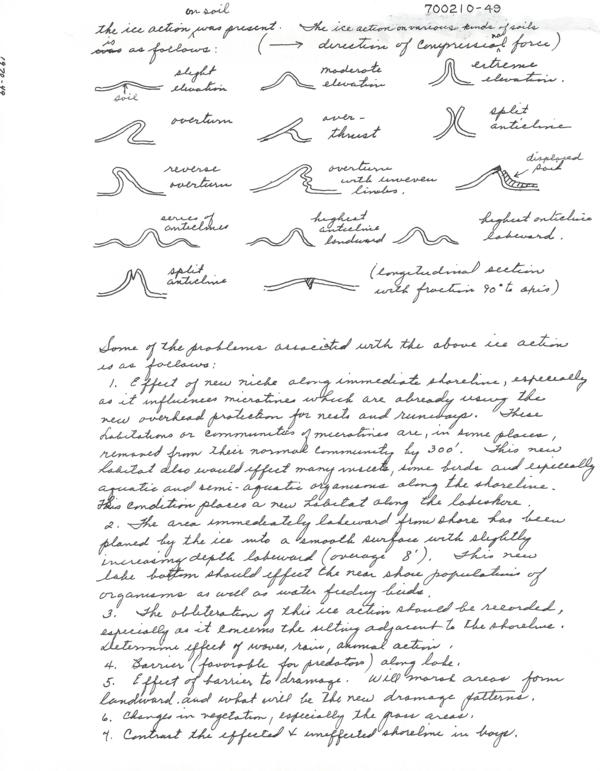 700210-49
1970-49
on soil
the ice action, was present. The ice action on various kinds of soils
is
was as follows: (⟶ direction of compressional force)
slight elevation
soil
moderate elevation
extreme elevation.
overturn
over-thrust
split anticline
reverse overturn
overturn with uneven limbs.
displayed
series of anticlines
highest anticline landward
highest anticline lakeward.
split anticline
(longitudinal section with fraction 90° to axis)
Some of the problems associated with the above ice action
is as follows:
1. Effect of new niche along immediate shoreline, especially
as it influences microtines which are already using the
new overhead protection for nests and runways. These
habitations or communities of microtines are, in some places,
removed from their normal community by 300'. This new
habitat also would effect many insects, some birds and especially
aquatic and semi-aquatic organisms along the shoreline.
This condition places a new habitat along the lakeshore.
2. The area immediately lakeward from shore has been
planed by the ice into a smooth surface with slightly
increasing depth lakeward (average 8'). This new
lake bottom should effect the near shore populations of
organisms as well as water feeding birds.
3. The obliteration of this ice action should be recorded,
especially as it concerns the silting adjacent to the shoreline.
Determine effect of waves, rain, animal action.
4. Barrier (favorable for predators) along lake.
5. Effect of barrier to drainage. Will marsh areas form
landward and what will be the new drainage patterns.
6. Changes in vegetation, especially the grass areas.
7. Contrast the effected & uneffected shoreline in bays.